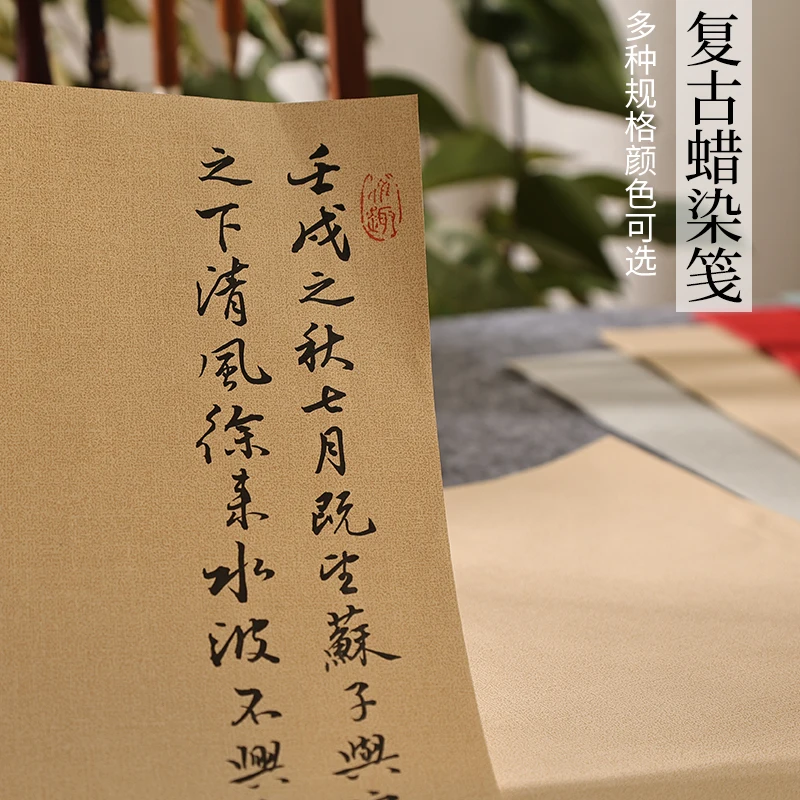 复古蜡染笺
多种规格颜色可选
壬戌之秋七月既望蘇子與
之下清風徐来水波不興